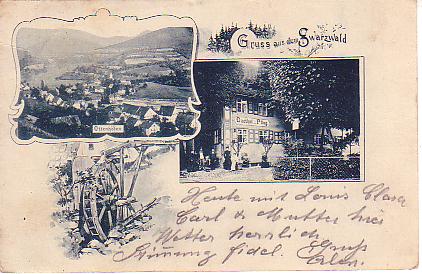 Gruss aus dem Swarzwald
Ottenhöfen
Gasthof z. Pflug
Heute mit Louis Clara
Carl & Mutter hier
Wetter herrlich
Stimmung fidel. Gruss